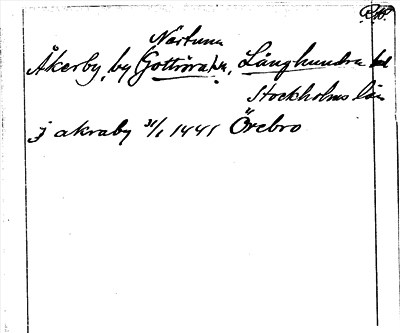 Närtuna
Åkerby, by Gottröra sn, Långhundra hd
Stockholms län
j akraby 31/1 1441 Örebro